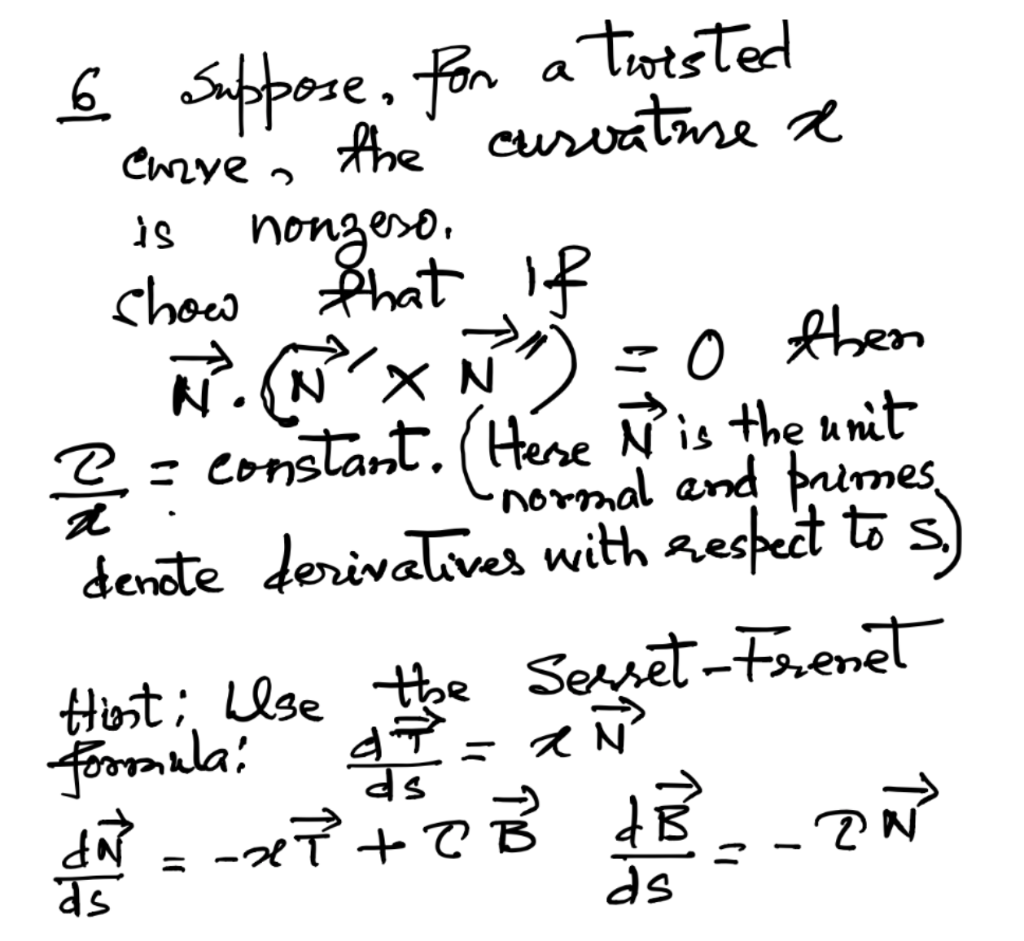 6 Suppose, for a twisted
curve, the curvature ϰ
is nonzero.
Show that if
N⃗ · (N⃗′ × N⃗″) = 0 then
τ/ϰ = constant. (Here N⃗ is the unit
normal and primes
denote derivatives with respect to s.)
Hint: Use the Serret-Frenet
formula: dT⃗/ds = ϰ N⃗
dN⃗/ds = -ϰT⃗ + τ B⃗ dB⃗/ds = - τ N⃗